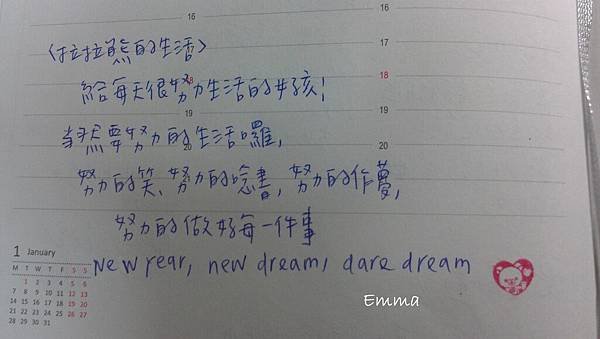 16
16
17
<拉拉熊的生活>
18
18
給每天很努力生活的女孩!
19
19
當然要努力的生活囉,
20
20
努力的笑、努力的唸書,努力的作夢,
21
努力的做好每一件事
1 January
M T W T F S S
1 2 3 4 5 6
7 8 9 10 11 12 13
14 15 16 17 18 19 20
21 22 23 24 25 26 27
28 29 30 31
New year, new dream, dare dream
Emma